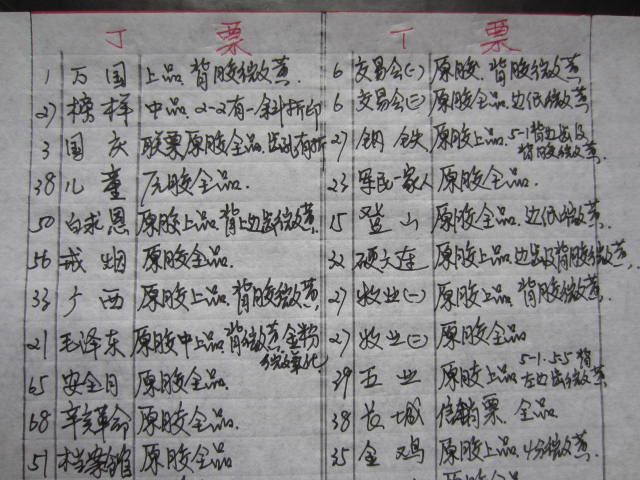 丁 票
1 万国 上品.背胶微黄.
27 榜样 中品.2-2有一斜折印
3 国庆 联票原胶全品.齿孔有折
38 儿童 原胶全品.
50 白求恩 原胶上品.背上边齿微黄.
56 戒烟 原胶全品.
33 广西 原胶上品.背胶微黄.
21 毛泽东 原胶中上品.背微黄金粉
微氧化
65 安全月 原胶全品.
68 辛亥革命 原胶全品.
51 档案馆 原胶全品
丁 票
6 交易会(一) 原胶.背胶微黄
6 交易会(二) 原胶全品.边纸微黄
27 钢铁 原胶上品.5-1背边齿及
背胶微黄.
23 军民一家人 原胶全品.
15 登山 原胶全品.边纸微黄.
32 硬大连 原胶上品.边齿及背胶微黄.
27 牧业(一) 原胶上品.背胶微黄.
27 牧业(二) 原胶全品
39 五业 原胶上品 5-1.5-5背
左边齿微黄
38 长城 信销票.全品
35 金鸡 原胶上品.4分微黄.
原胶全品